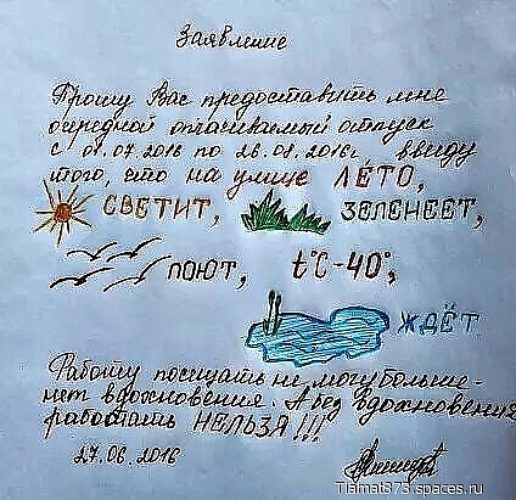 Заявление
Прошу Вас предоставить мне
очередной оплачиваемый отпуск
с 01.07.2016 по 26.08.2016г ввиду
того, что на улице ЛЕТО,
СВЕТИТ, ЗЕЛЕНЕЕТ,
ПОЮТ, t°C-40°,
ЖДЁТ
Работу посещать не могу больше-
нет вдохновения. А без вдохновения
работать НЕЛЬЗЯ!!!
27.06.2016
Tiamat873.spaces.ru